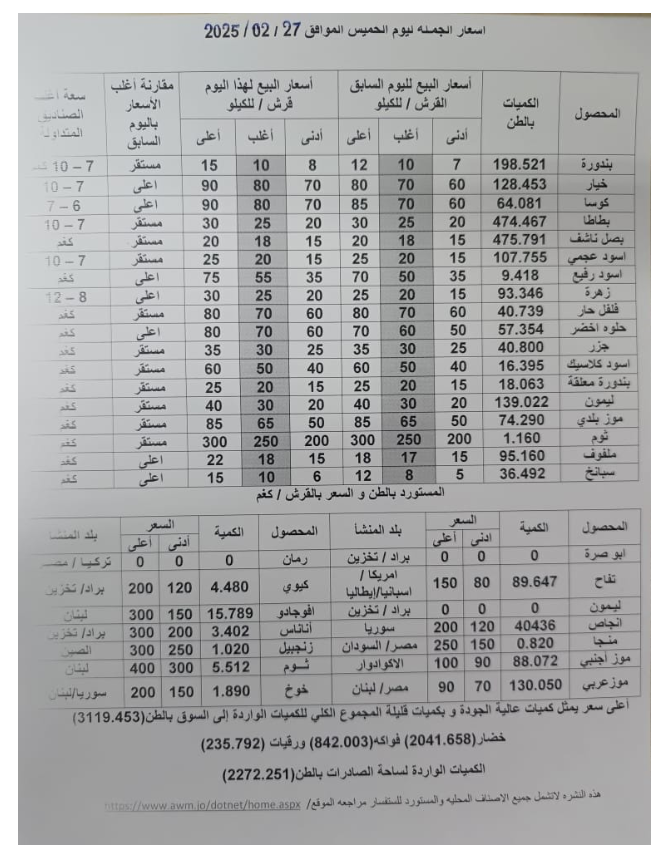 اسعار الجمله ليوم الخميس الموافق 27 / 02 / 2025
المحصول الكميات بالطن أسعار البيع لليوم السابق القرش / للكيلو أسعار البيع لهذا اليوم قرش / للكيلو مقارنة أغلب الأسعار باليوم السابق سعة أغلب الصناديق المتداولة
أدنى أغلب أعلى أدنى أغلب أعلى
بندورة 198.521 7 10 12 8 10 15 مستقر 7 – 10
خيار 128.453 60 70 80 70 80 90 اعلى 7 – 10
كوسا 64.081 60 70 85 70 80 90 اعلى 6 – 7
بطاطا 474.467 20 25 30 20 25 30 مستقر 7 – 10
بصل ناشف 475.791 15 18 20 15 18 20 مستقر كغم
اسود عجمي 107.755 15 20 25 15 20 25 مستقر 7 – 10
اسود رفيع 9.418 35 50 70 35 55 75 اعلى كغم
زهرة 93.346 15 20 25 20 25 30 اعلى 8 – 12
فلفل حار 40.739 60 70 80 60 70 80 مستقر كغم
حلوه اخضر 57.354 50 60 70 60 70 80 اعلى كغم
جزر 40.800 25 30 35 25 30 35 مستقر كغم
اسود كلاسيك 16.395 40 50 60 40 50 60 مستقر كغم
بندورة معلقة 18.063 15 20 25 15 20 25 مستقر كغم
ليمون 139.022 20 30 40 20 30 40 مستقر كغم
موز بلدي 74.290 50 65 85 50 65 85 مستقر كغم
ثوم 1.160 200 250 300 200 250 300 مستقر كغم
ملفوف 95.160 15 17 18 15 18 22 اعلى كغم
سبانخ 36.492 5 8 12 6 10 15 اعلى كغم
المستورد بالطن و السعر بالقرش / كغم
المحصول الكمية السعر بلد المنشأ المحصول الكمية السعر بلد المنشأ
ادنى أعلى أدنى أعلى
ابو صرة 0 0 0 براد / تخزين رمان 0 0 0 تركيا / مصر
تفاح 89.647 80 150 امريكا / اسبانيا/إيطاليا كيوي 4.480 120 200 براد/ تخزين
ليمون 0 0 0 براد / تخزين افوجادو 15.789 150 300 لبنان
انجاص 40436 120 200 سوريا أناناس 3.402 200 300 براد/ تخزين
منجا 0.820 150 250 مصر/ السودان زنجبيل 1.020 250 300 الصين
موز أجنبي 88.072 90 100 الاكوادوار ثـــوم 5.512 300 400 لبنان
موزعربي 130.050 70 90 مصر/ لبنان خوخ 1.890 150 200 سوريا/لبنان
أعلى سعر يمثل كميات عالية الجودة و بكميات قليلة المجموع الكلي للكميات الواردة إلى السوق بالطن(3119.453)
خضار(2041.658) فواكه(842.003) ورقيات (235.792)
الكميات الواردة لساحة الصادرات بالطن(2272.251)
هذه النشره لاتشمل جميع الاصناف المحليه والمستورد للستفسار مراجعه الموقع/ https://www.awm.jo/dotnet/home.aspx